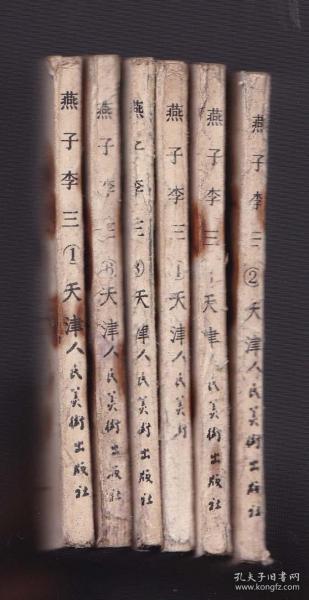 燕子李三①天津人民美術出版社
燕子李三③天津人民美術出版社
燕子李三③天津人民美術出版社
燕子李三1天津人民美術
燕子李三天津人民美術出版社
燕子李三②天津人民美術出版社
孔夫子旧书网
www.kongfz.com